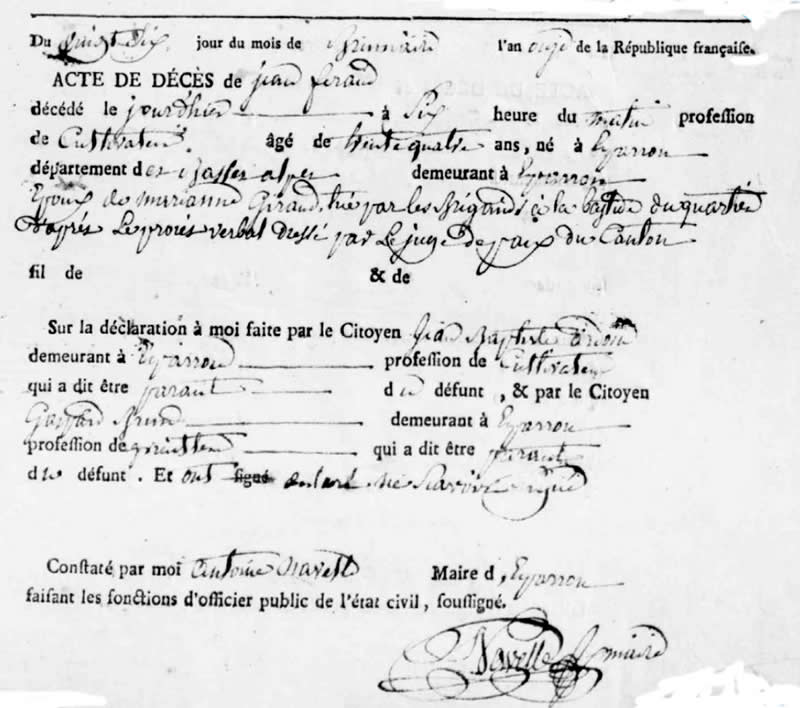 Du vingt Six jour du mois de Brumaire l'an onze de la République française.
ACTE DE DÉCÈS de jean feraud
décédé le jourdhier à Six heure du matin profession
de Cultivateur âgé de trente quatre ans, né à Eyparron
département des Basses alpes demeurant à Eyparron
Epoux de marianne Giraud, tué par les Brigands à la bastide du quartié
d'aprés Le procés verbal Dressé par Le juge de paix du Canton
fil de & de
Sur la déclaration à moi faite par le Citoyen jean Baptiste
demeurant à Eyparron profession de Cultivateur
qui a dit être parant du défunt, & par le Citoyen
Gaspard Brun demeurant à Eyparron
profession de qui a dit être parant
du défunt. Et ont signé ne Scavoir signé
Constaté par moi antoine Navelle Maire d'Eyparron
faisant les fonctions d'officier public de l'état civil, soussigné.
Navelle maire